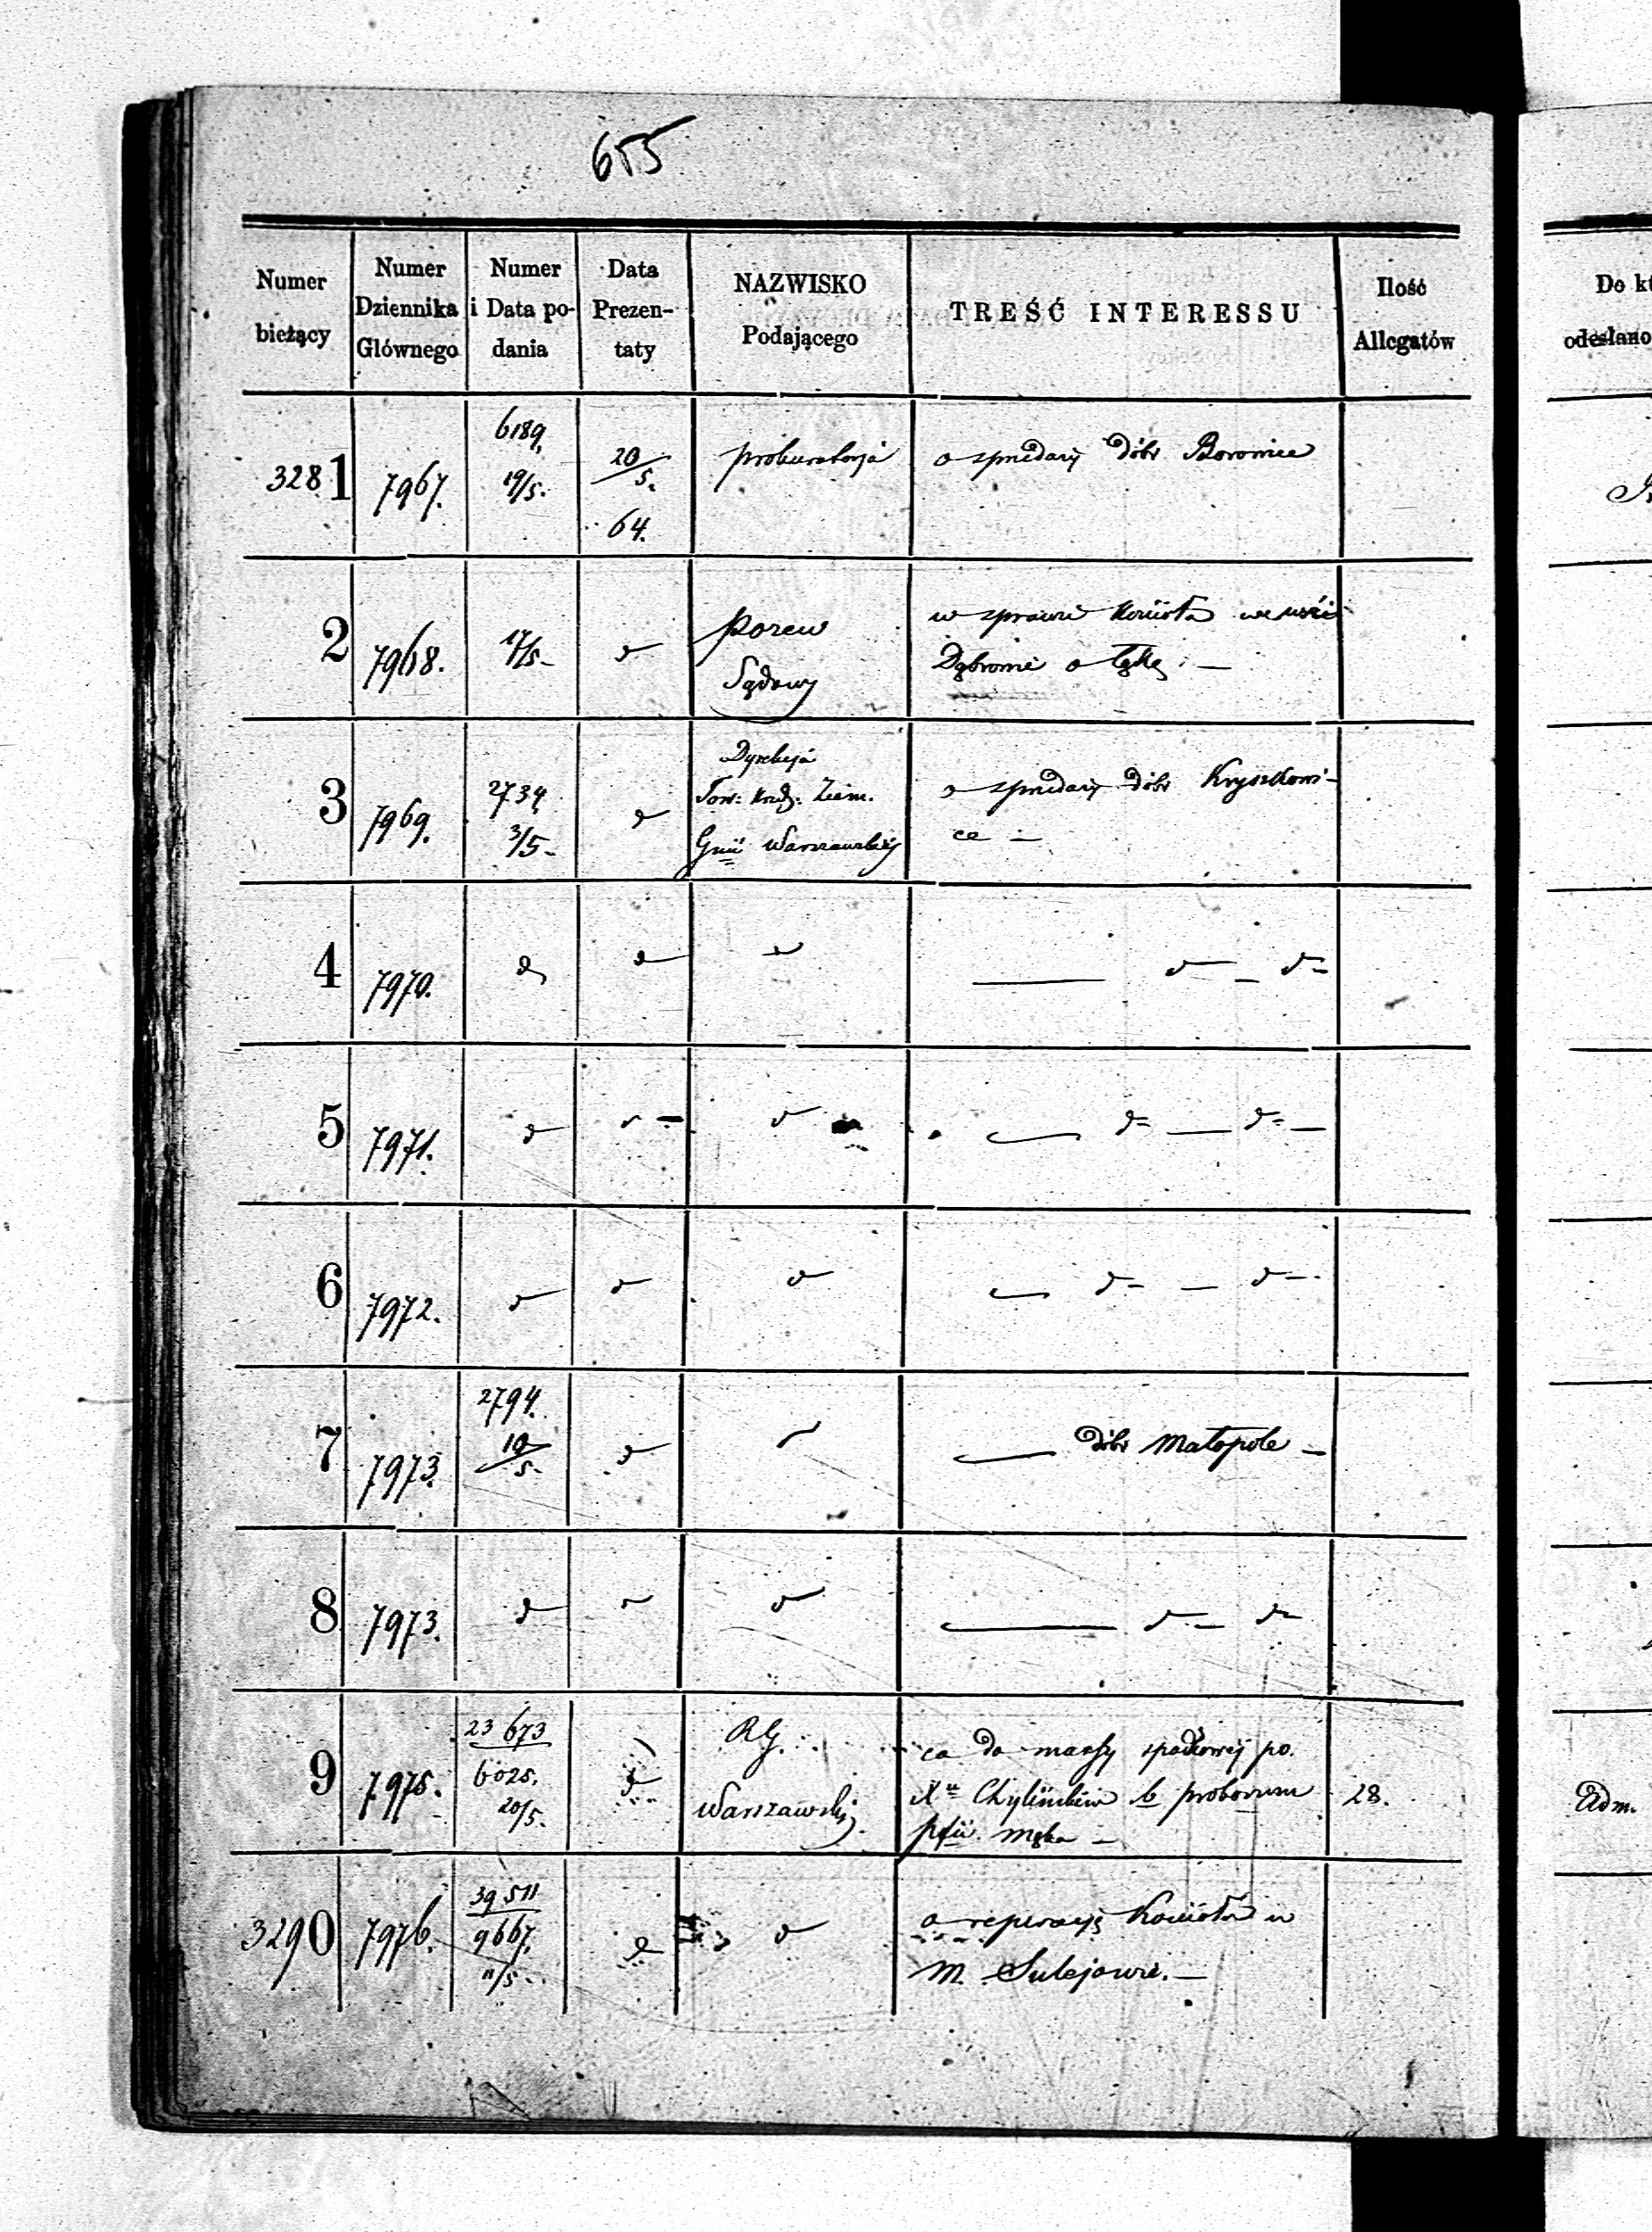 655
Numer bieżący | Numer Dziennika Głównego | Numer i Data podania | Data Prezentaty | NAZWISKO Podającego | TREŚĆ INTERESSU | Ilość Allegatów | Do kt odesłano
3281 | 7967. | 6189. 19/5. | 20/5. 64. | Prokuratorja | o sprzedaży dóbr Borowice
2 | 7968. | 17/5 | d | Pozew Sądowy | w sprawie kościoła we wsi
Dąbrowie o łąkę –
3 | 7969. | 2734 3/5 | d | Dyrekcja Tow: Kred: Ziem. Gnii Warszawskiej | o sprzedaży dóbr Kryszkowi-
ce –
4 | 7970. | d | d | d | — d – d –
5 | 7971. | d | d – | d | — d – — d – —
6 | 7972. | d | d | d | — d – — d –
7 | 7973. | 2794. 10/5. | d | d | — dóbr Małopole –
8 | 7973. | d | d | d | — d – d –
9 | 7975. | 23673 6025. 20/5. | d | RG. Warszawski | co do massy spadkowej po
Xu b proboszczu
pfii. Męka – | 28. | Adm.
3290 | 7976. | 39511 9667. 11/5 | d | d | o reperacyę Kościoła w
m Sulejowie. –